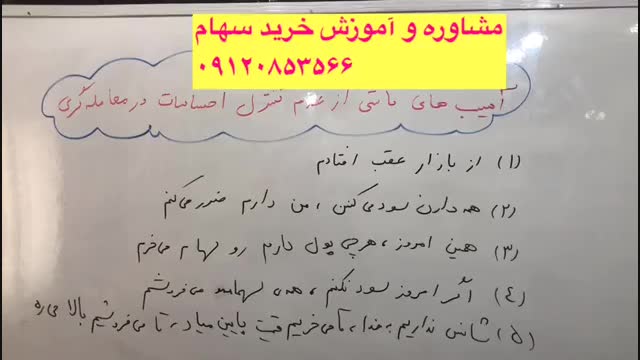 مشاوره و آموزش خرید سهام
۰۹۱۲۰۸۵۳۵۶۶
آسیب های ناشی از عدم کنترل احساسات در معامله گری
(۱) از بازار عقب افتادم
(۲) همه دارن سود می کنن ، من دارم ضرر می کنم
(۳) همین امروز ، هر چی پول دارم رو سهام می خرم
(٤) اگر امروز سود نکنم ، همه ی سهامامو می فروشم
(۵) شانس نداریم به خدا ، تا می خریم قیمت پایین میاد ، تا می فروشیم بالا می ره